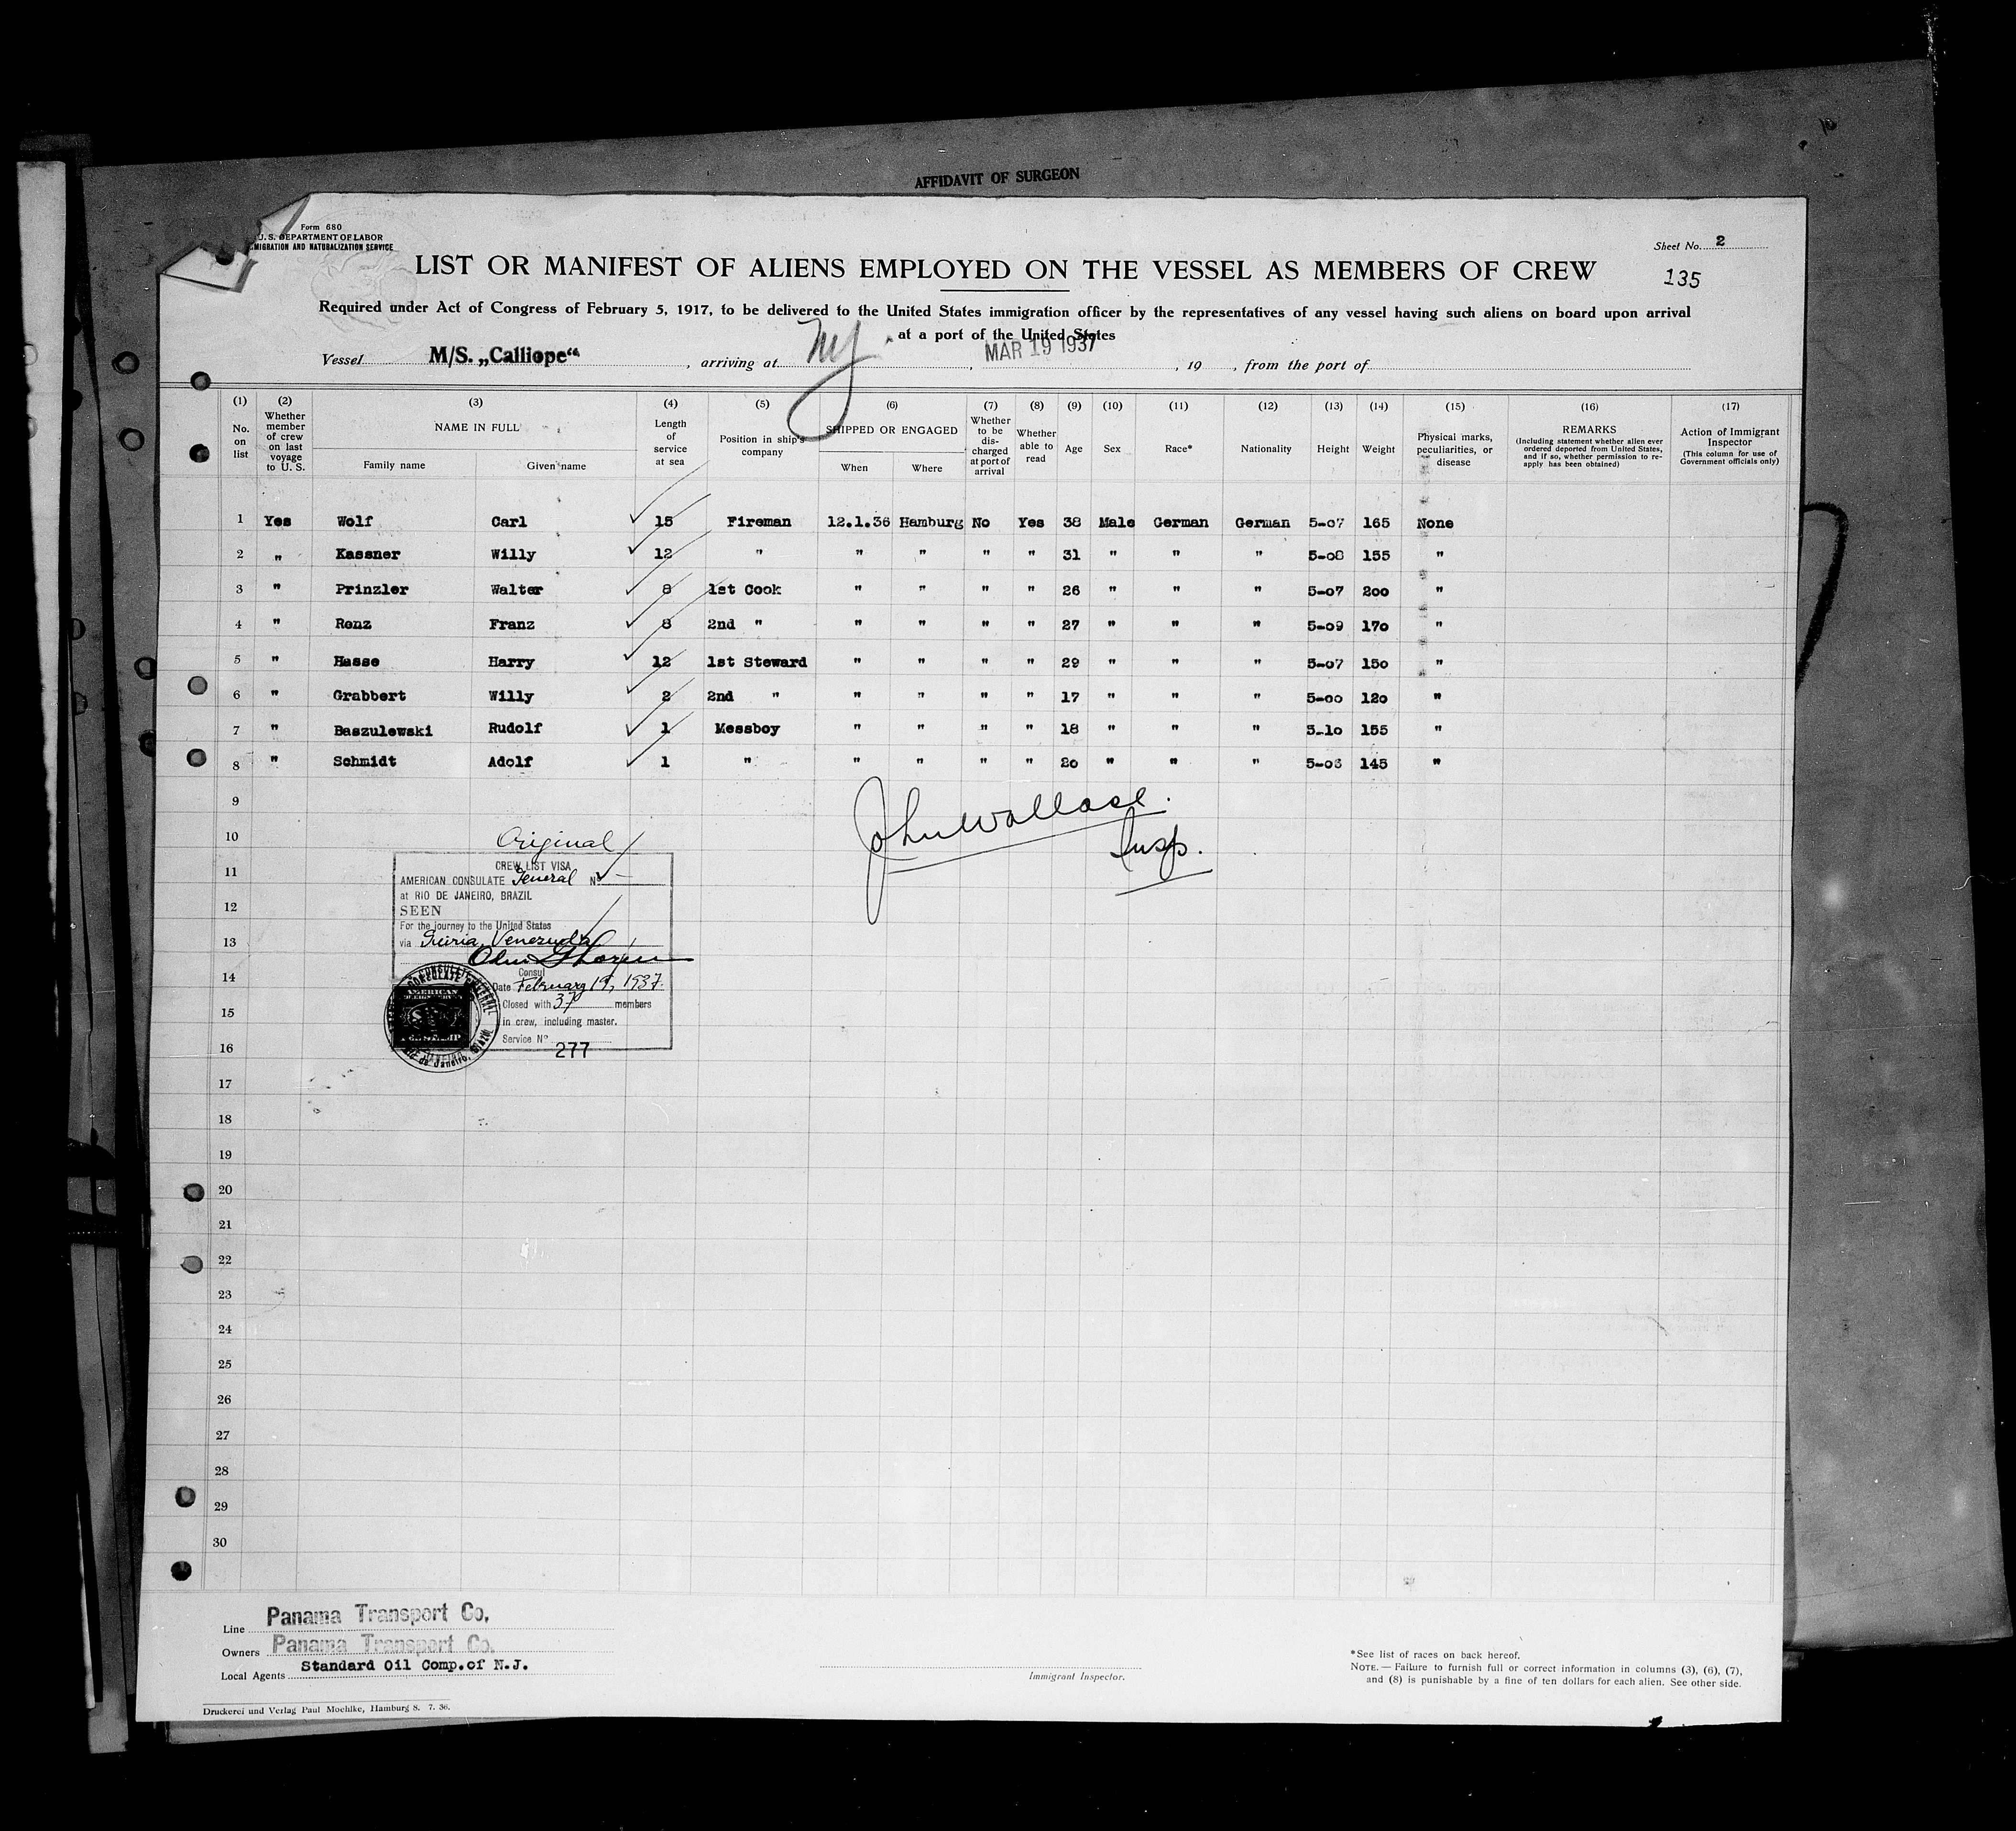 AFFIDAVIT OF SURGEON
Form 680
U. S. DEPARTMENT OF LABOR
MIGRATION AND NATURALIZATION SERVICE
Sheet No. 2
135
LIST OR MANIFEST OF ALIENS EMPLOYED ON THE VESSEL AS MEMBERS OF CREW
Required under Act of Congress of February 5, 1917, to be delivered to the United States immigration officer by the representatives of any vessel having such aliens on board upon arrival
at a port of the United States
Vessel M/S. „Calliope“ , arriving at NY , MAR 19 1937 , 19 , from the port of
(1) (2) (3) (4) (5) (6) (7) (8) (9) (10) (11) (12) (13) (14) (15) (16) (17)
No. on list
Whether member of crew on last voyage to U. S.
NAME IN FULL
Family name Given name
Length of service at sea
Position in ship's company
SHIPPED OR ENGAGED
When Where
Whether to be discharged at port of arrival
Whether able to read
Age
Sex
Race*
Nationality
Height
Weight
Physical marks, peculiarities, or disease
REMARKS
(Including statement whether alien ever ordered deported from United States, and if so, whether permission to re-apply has been obtained)
Action of Immigrant Inspector
(This column for use of Government officials only)
1 Yes Wolf Carl 15 Fireman 12.1.36 Hamburg No Yes 38 Male German German 5-07 165 None
2 " Kassner Willy 12 " " " " " 31 " " " 5-08 155 "
3 " Prinzler Walter 8 1st Cook " " " " 26 " " " 5-07 200 "
4 " Renz Franz 8 2nd " " " " " 27 " " " 5-09 170 "
5 " Hasse Harry 12 1st Steward " " " " 29 " " " 5-07 150 "
6 " Grabbert Willy 2 2nd " " " " " 17 " " " 5-00 120 "
7 " Baszulewski Rudolf 1 Messboy " " " " 18 " " " 5-10 155 "
8 " Schmidt Adolf 1 " " " " " 20 " " " 5-06 145 "
9
10
11
12
13
14
15
16
17
18
19
20
21
22
23
24
25
26
27
28
29
30
John Wallace.
Insp.
Original
CREW LIST VISA
AMERICAN CONSULATE General No –
at RIO DE JANEIRO, BRAZIL
SEEN
For the journey to the United States
via Guiria, Venezuela
Consul
Date February 19, 1937.
Closed with 37 members
in crew, including master.
Service No 277
Line Panama Transport Co.
Owners Panama Transport Co.
Local Agents Standard Oil Comp. of N.J.
Immigrant Inspector.
*See list of races on back hereof.
NOTE.—Failure to furnish full or correct information in columns (3), (6), (7),
and (8) is punishable by a fine of ten dollars for each alien. See other side.
Druckerei und Verlag Paul Moehlke, Hamburg 8. 7. 36.